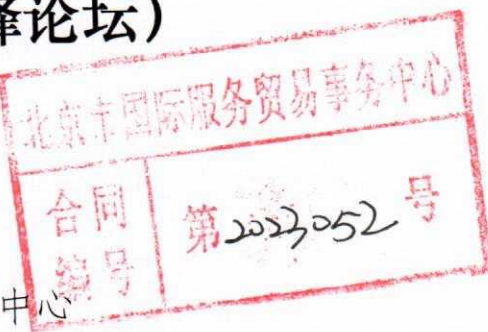 峰论坛)
北京市国际服务贸易事务中心
合同
编号
第2023052号
中心